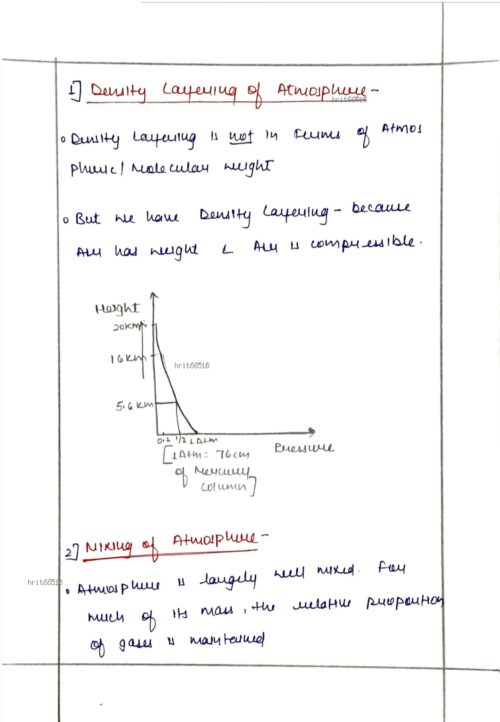 1] Density Layering of Atmosphere -
hrit66518
• Density Layering is not in terms of Atmos
pheric / Molecular weight
• But we have Density Layering - because
Air has weight & Air is compressible.
Height
20km
16km
hrit66518
5.6km
0.1 1/2 1 Atm
Pressure
[1 Atm = 76cm
of Mercury
column]
2] Mixing of Atmosphere -
hrit66518
• Atmosphere is largely well mixed. For
much of its mass, the relative proportion
of gases is maintained